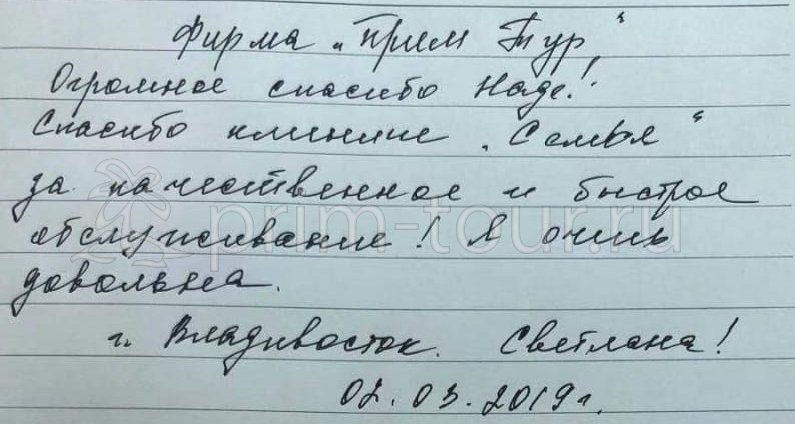 Фирма „Прим Тур“
Огромное спасибо Наде!
Спасибо клинике „Семья“
за качественное и быстрое
обслуживание! Я очень
довольна.
г. Владивосток. Светлана!
02.03.2019г.
prim-tour.ru